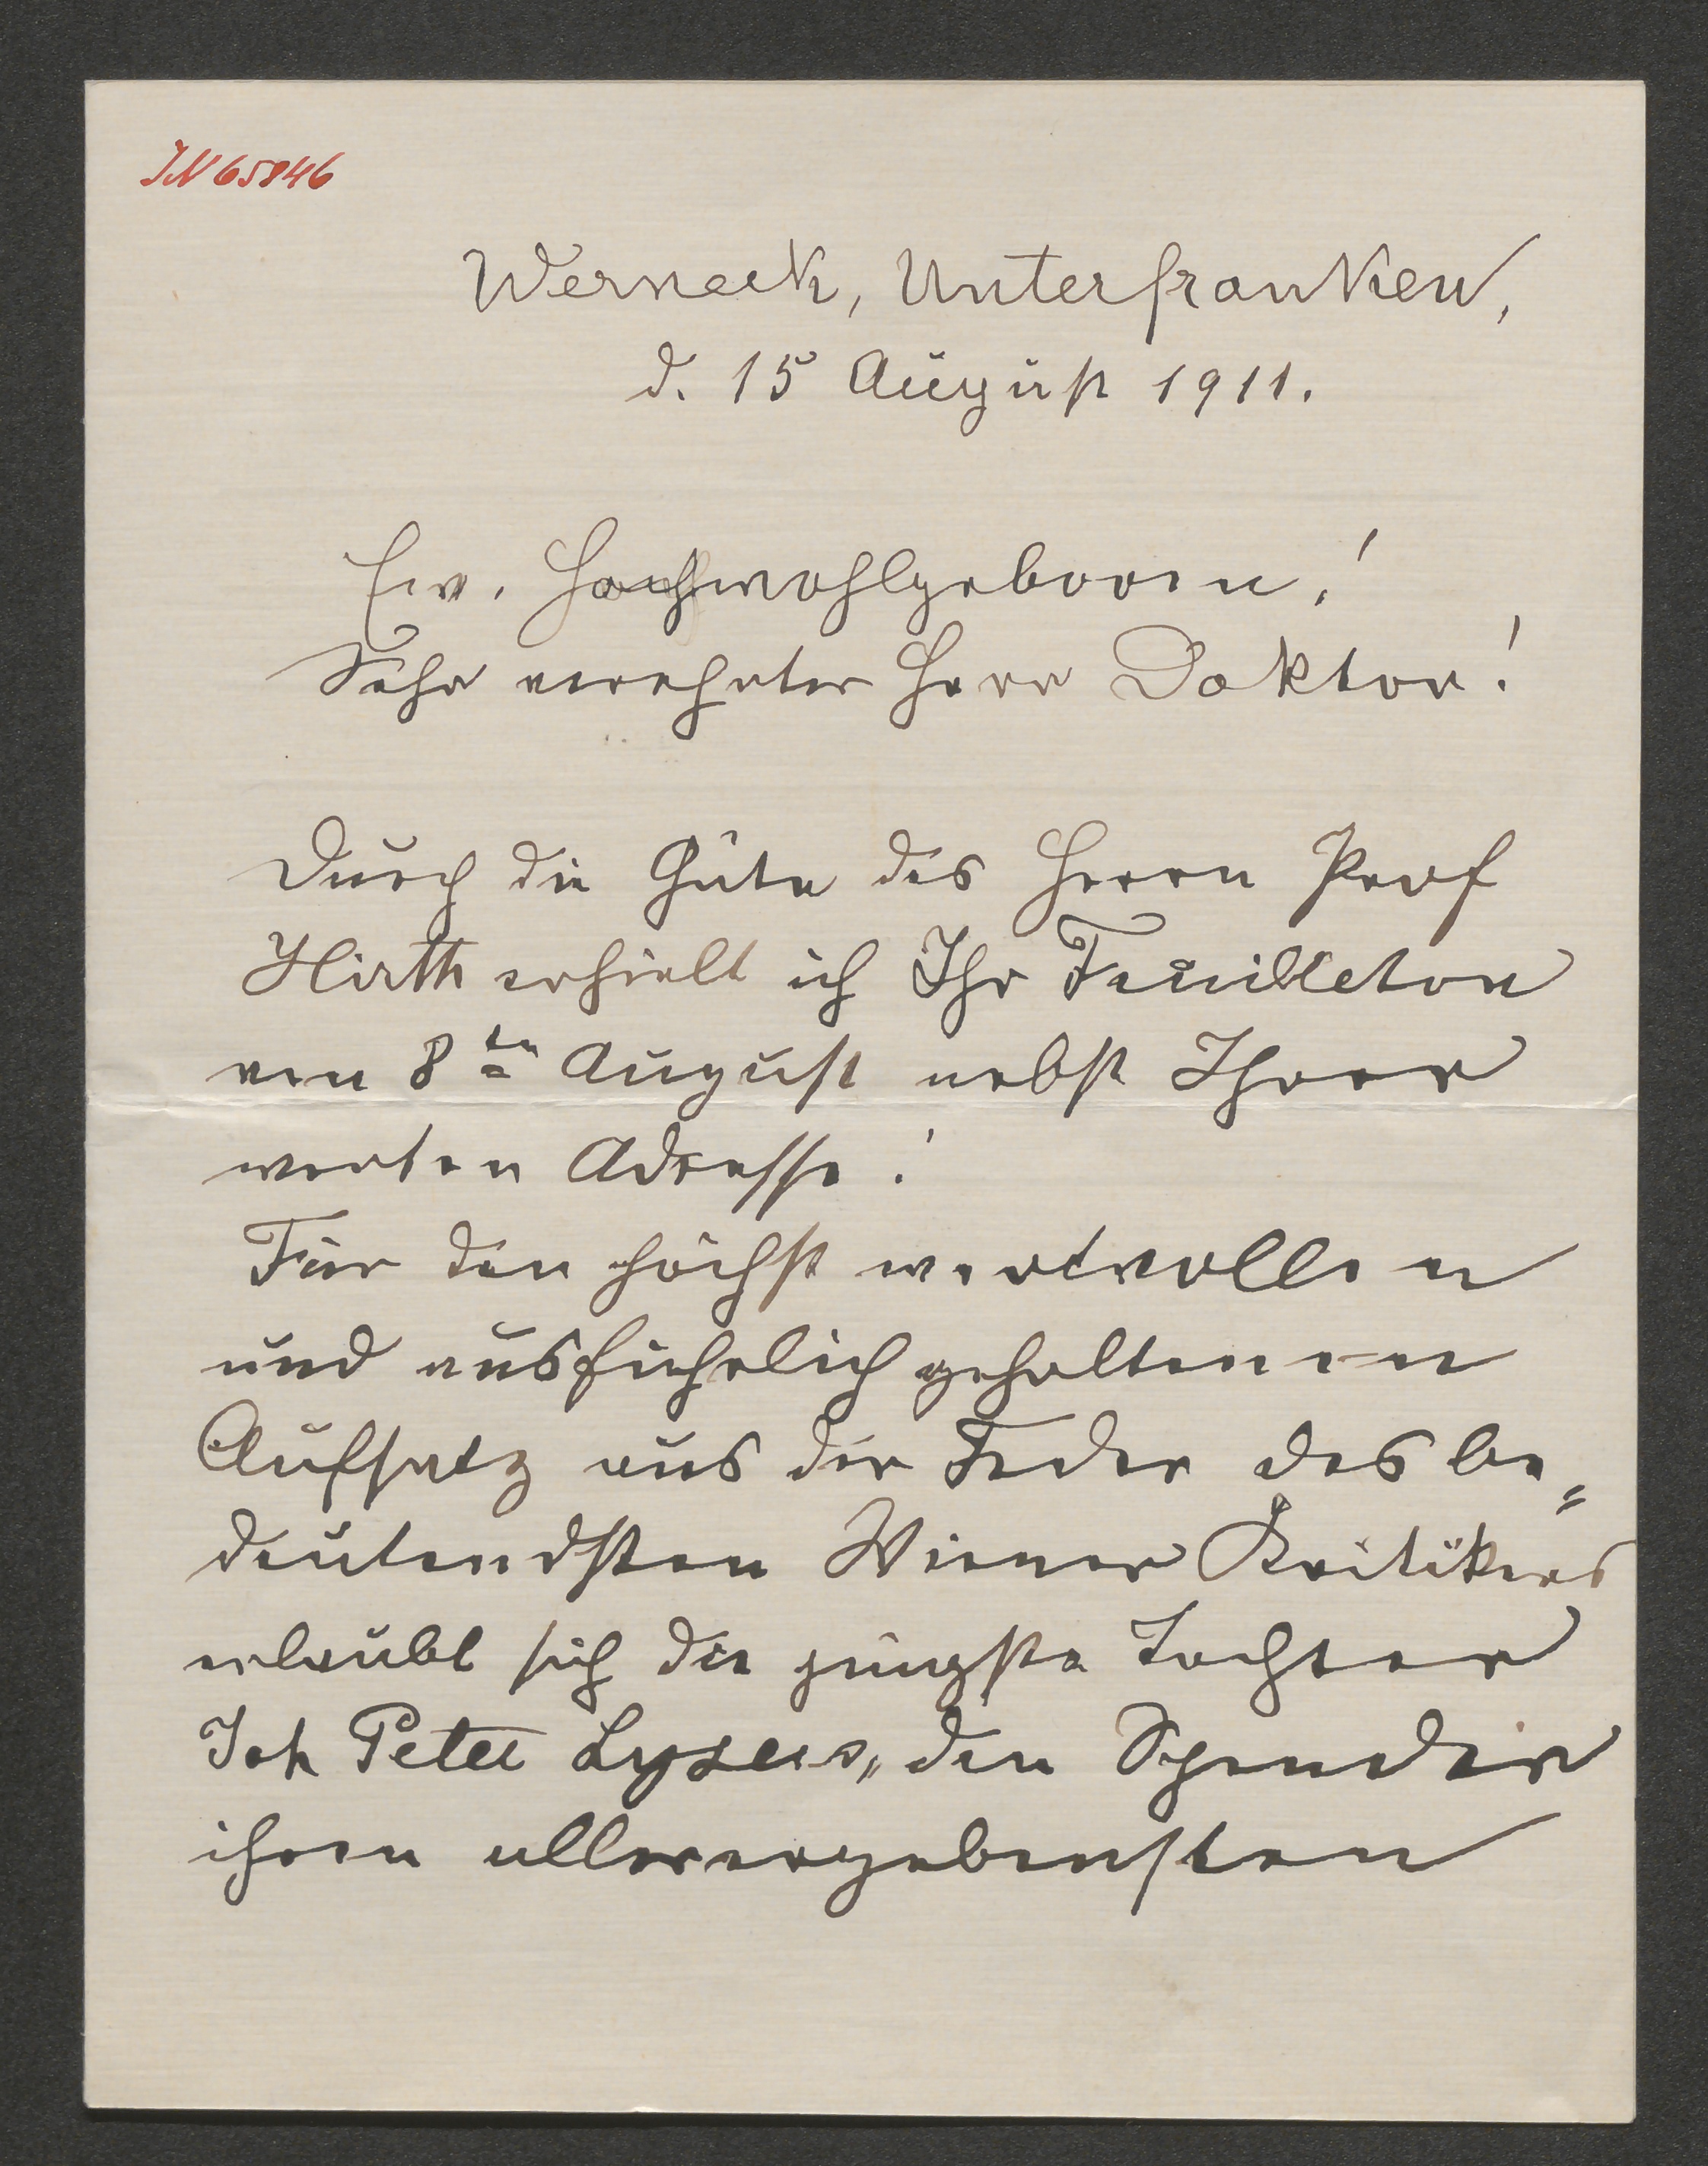 IN 65846
Werneck, Unterfranken,
d. 15 August 1911.
Ew. Hochwohlgeboren!
Sehr verehrter Herr Doktor!
Durch die Güte des Herrn Prof
Hirth erhielt ich Ihr Feuilleton
vom 8ten August nebst Ihrer
werten Adresse!
Für den höchst wertvollen
und ausführlich gehaltenen
Aufsatz aus der Feder des be=
deutendsten Wiener Kritikers
erlaubt sich die jüngste Tochter
Joh Peter Lysers, dem Spender
ihren allerergebensten